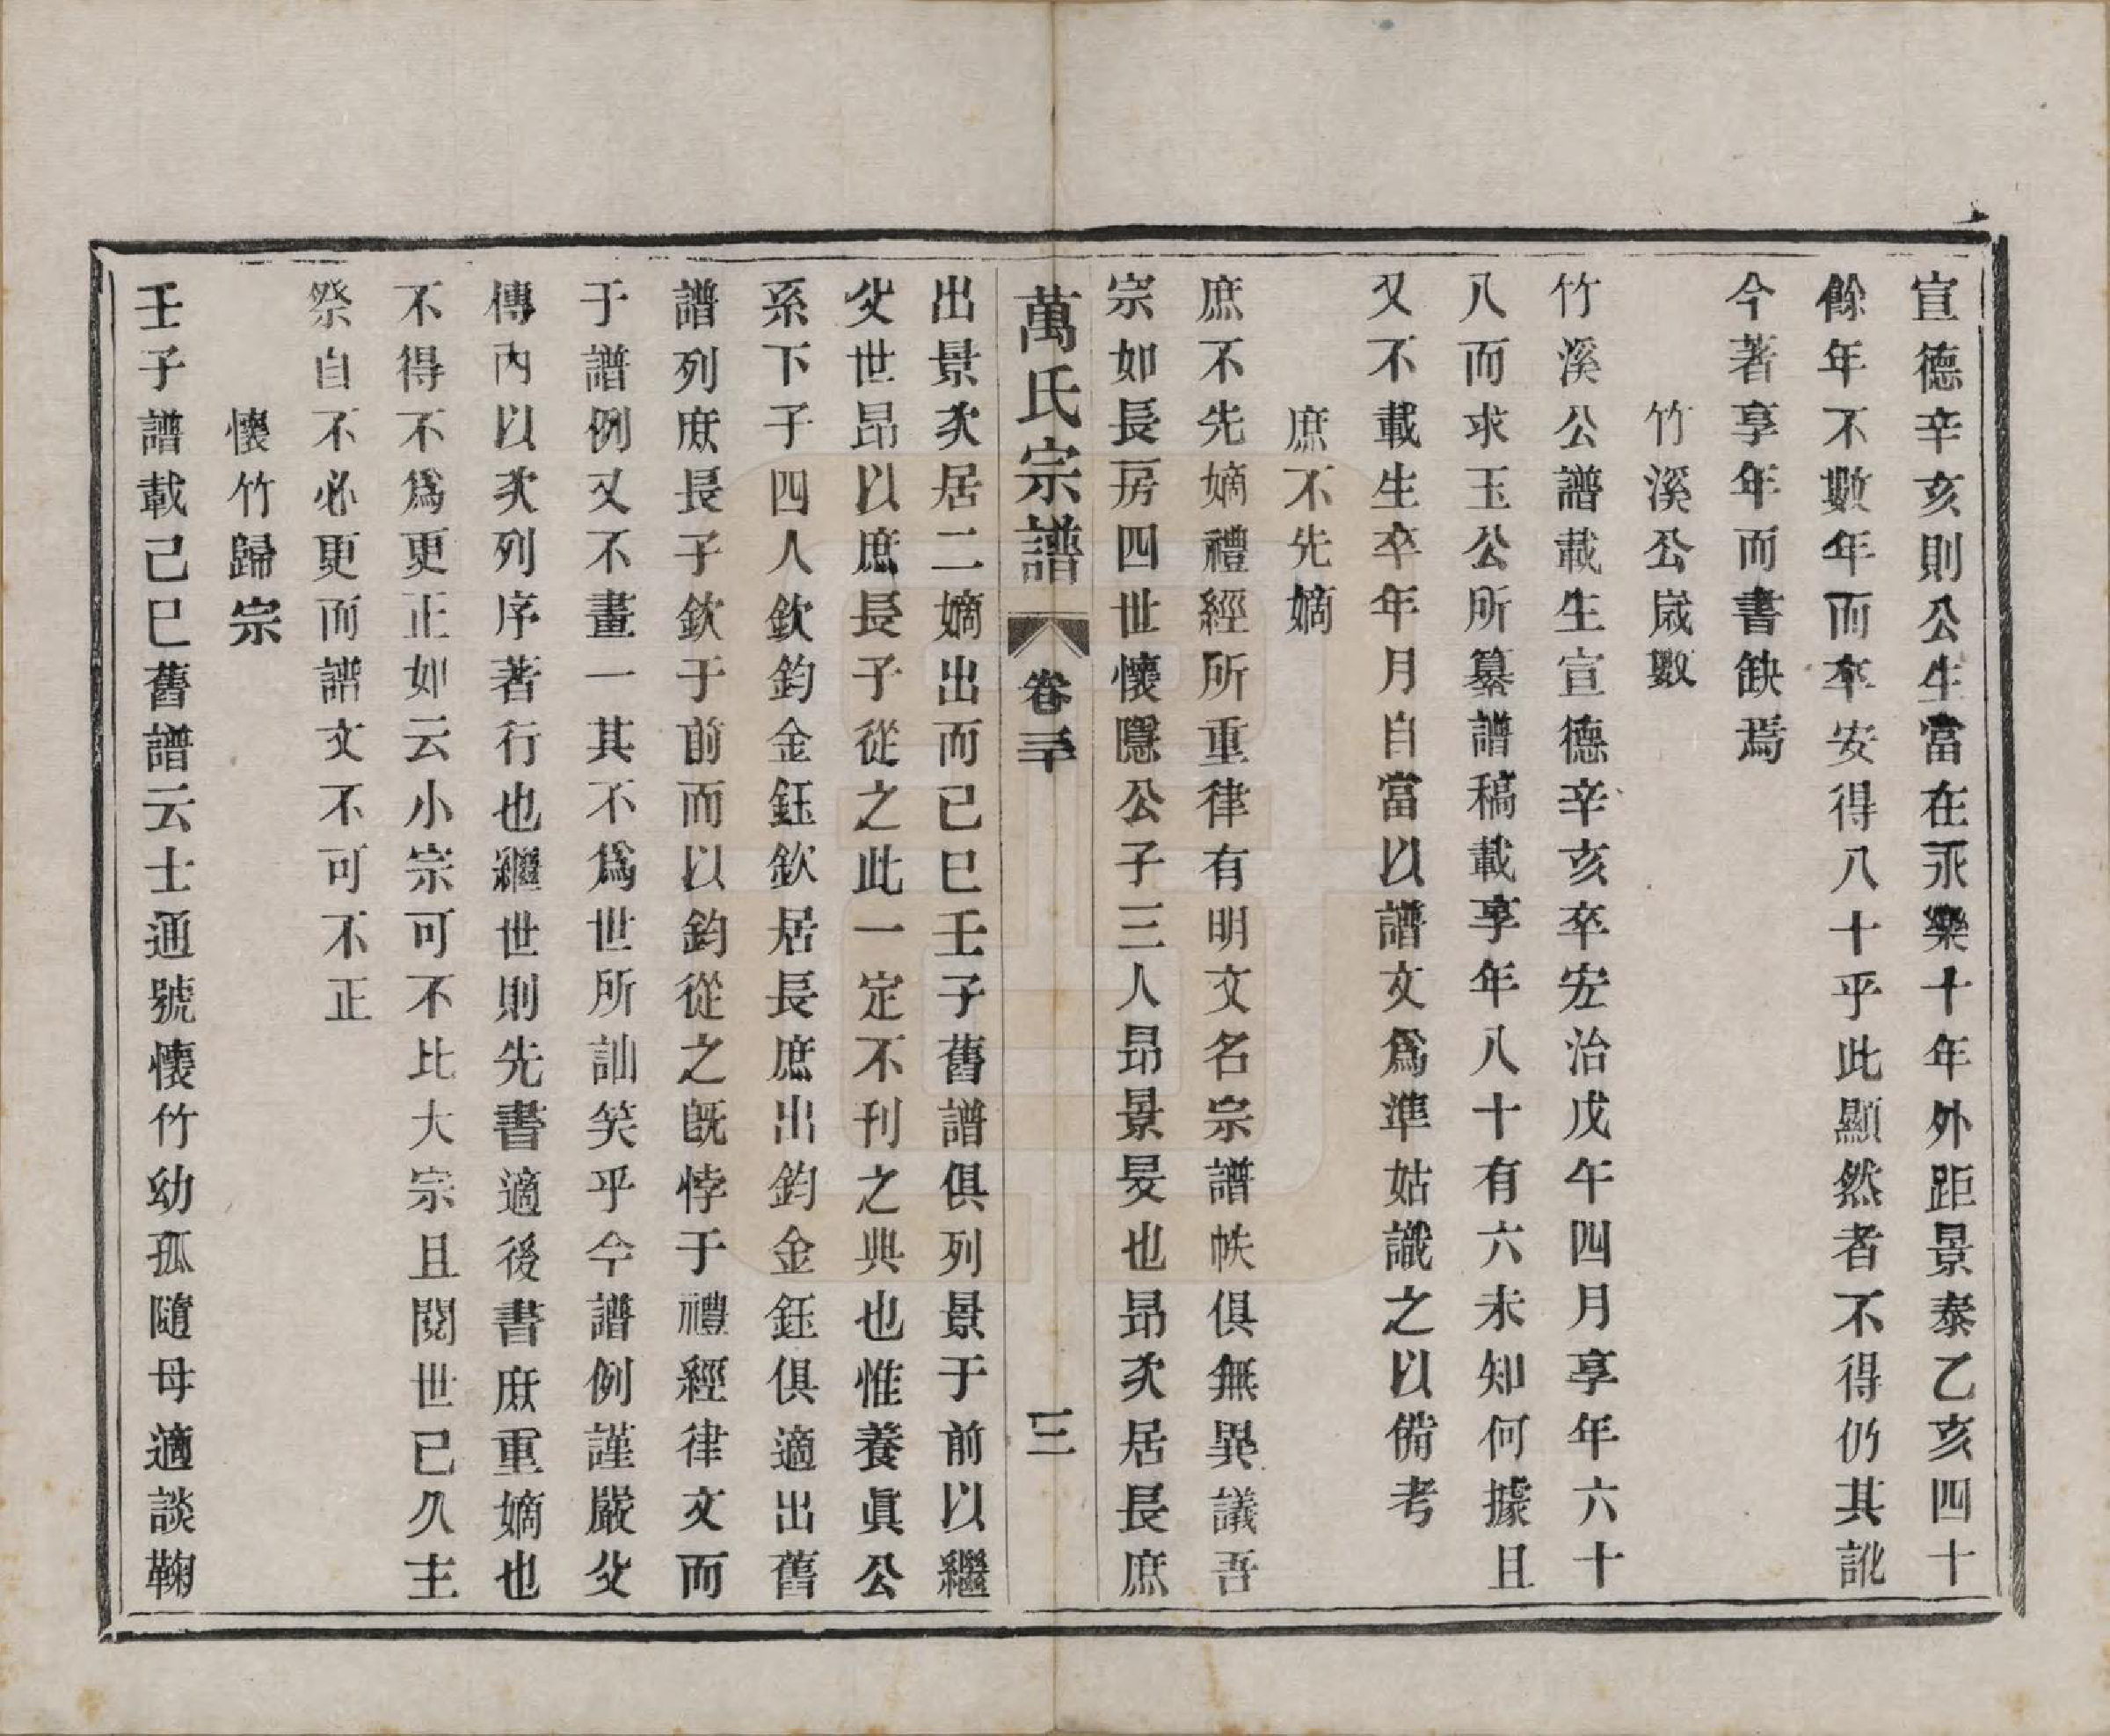 宣德辛亥則公生當在永樂十年外距景泰乙亥四十
餘年不數年而卒安得八十乎此顯然者不得仍其訛
今著享年而書缺焉
竹溪公嵗數
竹溪公譜載生宣德辛亥卒宏治戊午四月享年六十
八而求玉公所纂譜稿載享年八十有六未知何據且
又不載生卒年月自當以譜文爲準姑識之以備考
庶不先嫡
庶不先嫡禮經所重律有明文名宗譜帙俱無異議吾
宗如長房四世懷隱公子三人昂景旻也昂次居長庶
萬氏宗譜
卷三十
三
出景次居二嫡出而己巳壬子舊譜俱列景于前以繼
父世昂以庶長子從之此一定不刊之典也惟養眞公
系下子四人欽鈞金鈺欽居長庶出鈞金鈺俱適出舊
譜列庶長子欽于前而以鈞從之既悖于禮經律文而
于譜例又不畫一其不爲世所訕笑乎今譜例謹嚴父
傳內以次列序著行也繼世則先書適後書庶重嫡也
不得不爲更正如云小宗可不比大宗且閱世已久主
祭自不必更而譜文不可不正
懷竹歸宗
壬子譜載己巳舊譜云士通號懷竹幼孤隨母適談鞠